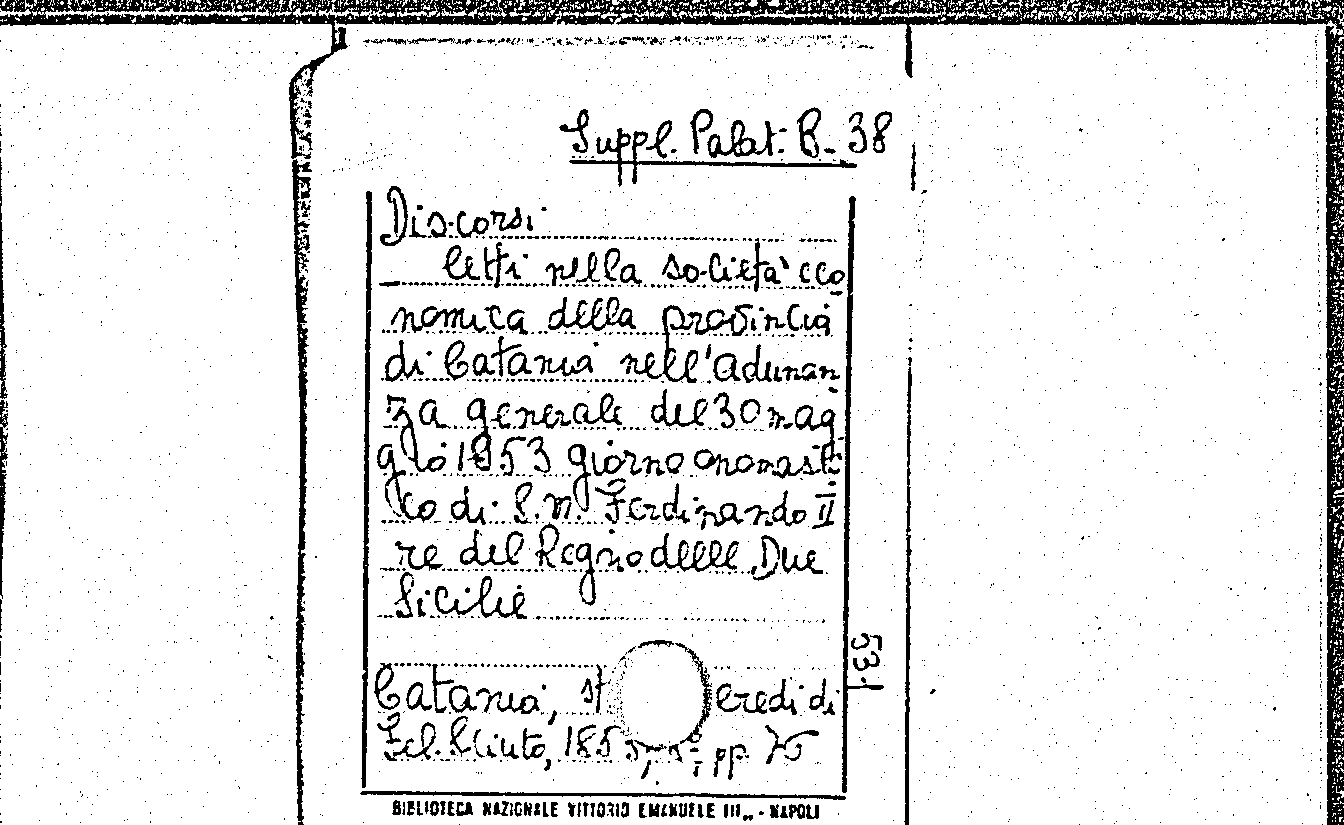 Suppl. Palat. B. 38
Discorsi
letti nella società eco
nomica della provincia
di Catania nell'adunan
za generale del 30 mag
gio 1853 giorno onomasti
co di S. M. Ferdinando II
re del Regno delle Due
Sicilie
Catania, st eredi di
Fel. Sciuto, 185 pp. 75
53-1
BIBLIOTECA NAZIONALE VITTORIO EMANUELE III„ - NAPOLI